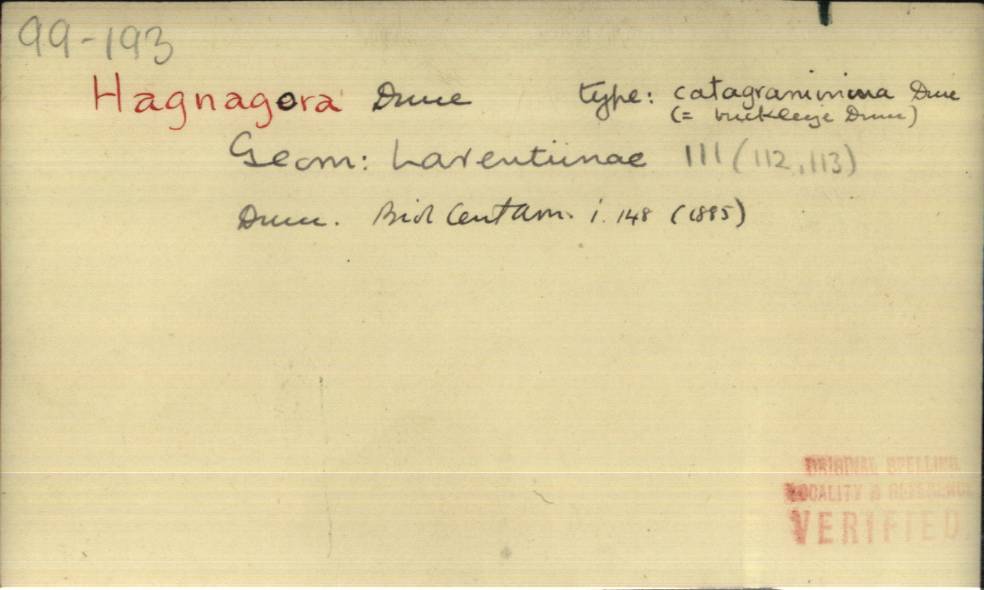 99-193
Hagnagora Druce type: catagrammina Druce
(= buckleyi Druce)
Geom: Larentiinae 111 (112, 113)
Druce. Biol Cent Am. i. 148 (1885)
ORIGINAL SPELLING
LOCALITY & REFERENCE
VERIFIED